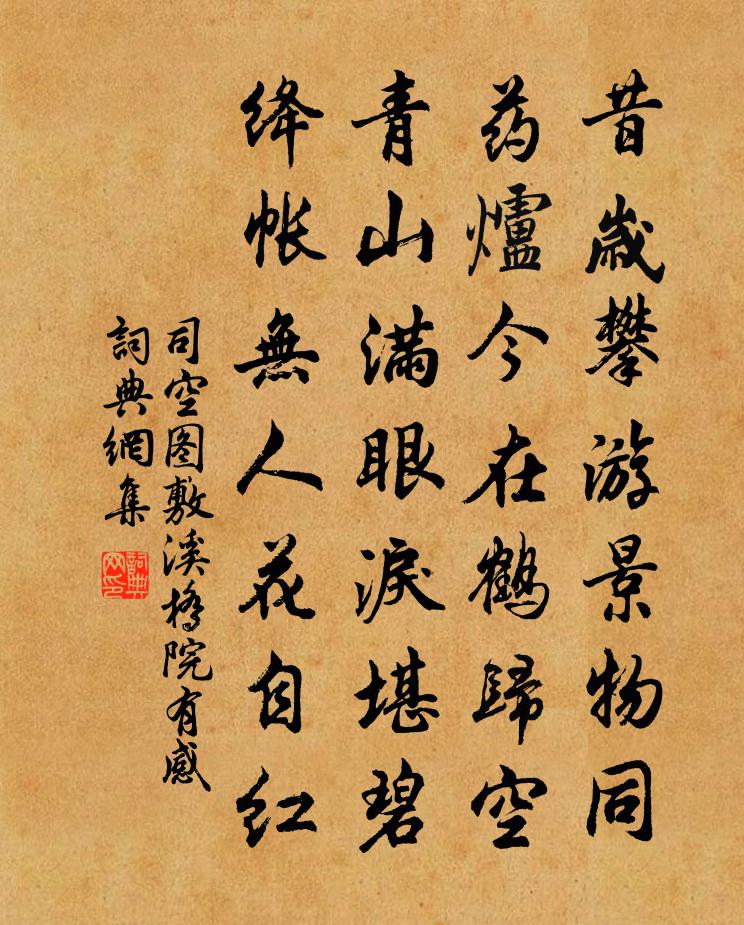 昔歲攀游景物同
药爐今在鶴歸空
青山滿眼淚堪碧
绛帐無人花自红
司空图敷溪橋院有感
詞典網集
詞典網印